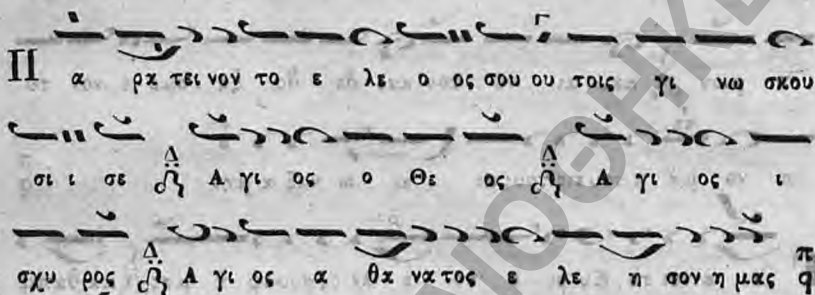 Πα ρα τει νον το ε λε ο ος σου ου τοις γι νω σκου
σι ι σε Δ Α γι ος ο Θε ος Δ Α γι ος ι
σχυ ρος Δ Α γι ος α θα να τος ε λε η σον η μας π q